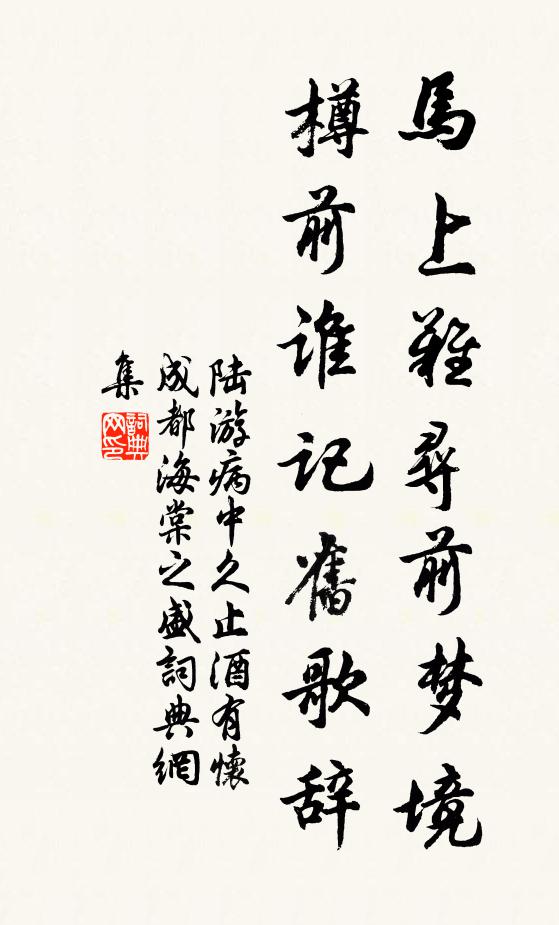 馬上難尋前梦境
樽前谁记舊歌辞
陆游病中久止酒有懷
成都海棠之盛詞典網
集
詞典
网印